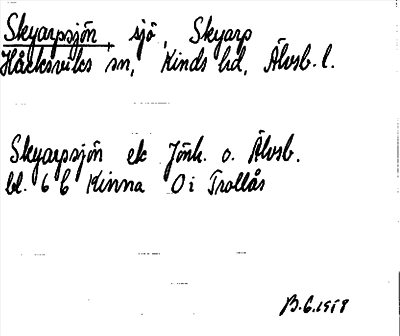 Skyarpsjön sjö, Skyarp
Håcksviks sn, Kinds hd, Älvsb. l.
Skyarpsjön ek Jönk. o. Älvsb.
bl. 6 C Kinna O i Trollås
B.G. 1958